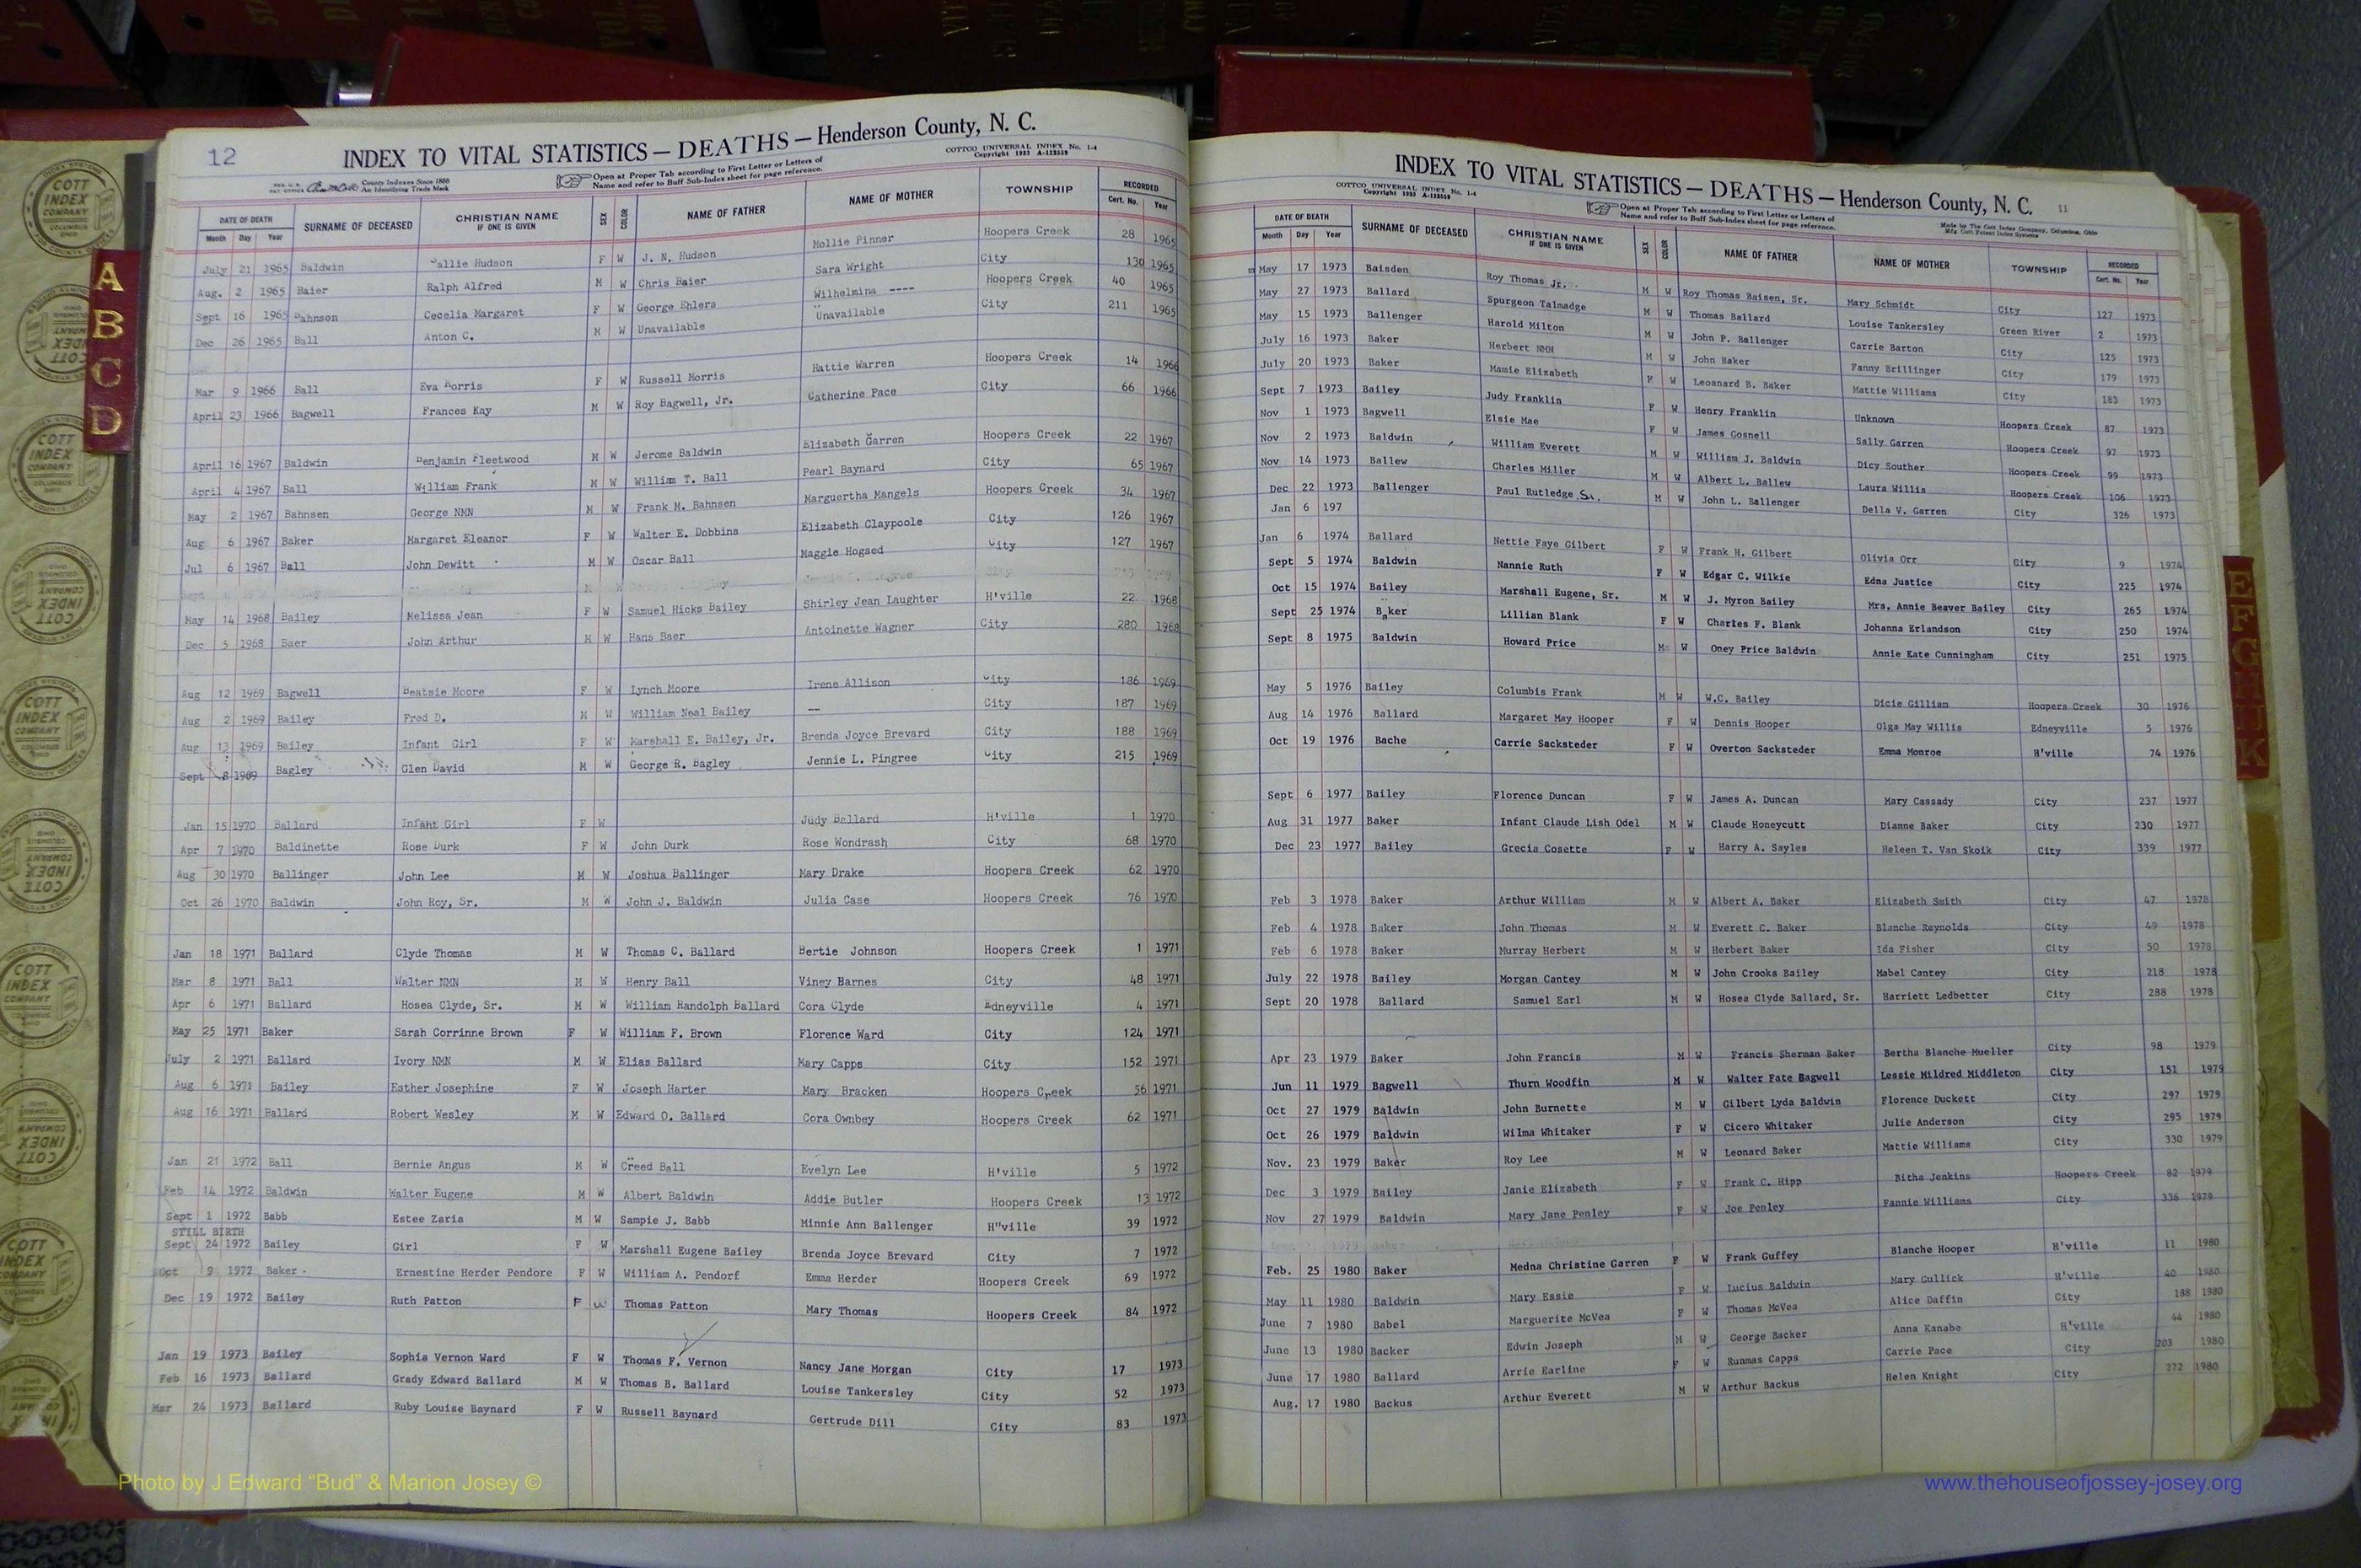 12
INDEX TO VITAL STATISTICS — DEATHS — Henderson County, N. C.
COTTCO UNIVERSAL INDEX No. 1-4
Copyright 1933 A-123559
County Indexes Since 1888
An Identifying Trade Mark
Open at Proper Tab according to First Letter or Letters of
Name and refer to Buff Sub-Index sheet for page reference.
DATE OF DEATH SURNAME OF DECEASED CHRISTIAN NAME IF ONE IS GIVEN SEX COLOR NAME OF FATHER NAME OF MOTHER TOWNSHIP RECORDED
Month Day Year Cert. No. Year
July 21 1965 Baldwin Hudson F W J. N. Hudson Mollie Pinner Hoopers Creek 28 1965
Aug. 2 1965 Baier Ralph Alfred M W Chris Baier Sara Wright City 130 1965
Sept 16 1965 Bahnson Cecelia Margaret F W George Ehlers Wilhelmina ---- Hoopers Creek 40 1965
Dec 26 1965 Ball Anton C. M W Unavailable Unavailable City 211 1965
Mar 9 1966 Ball Eva F W Russell Morris Hattie Warren Hoopers Creek 14 1966
April 23 1966 Bagwell Frances Kay M W Roy Bagwell, Jr. Catherine Pace City 66 1966
April 16 1967 Baldwin Benjamin Fleetwood M W Jerome Baldwin Elizabeth Garren Hoopers Creek 22 1967
April 4 1967 Ball William Frank M W William T. Ball Pearl Baynard City 65 1967
May 2 1967 Bahnsen George NMN M W Frank M. Bahnsen Marguertha Mangels Hoopers Creek 34 1967
Aug 6 1967 Baker Margaret Eleanor F W Walter E. Dobbins Elizabeth Claypoole City 126 1967
Jul 6 1967 Ball John Dewitt M W Oscar Ball Maggie Hogsed City 127 1967
May 14 1968 Bailey Melissa Jean F W Samuel Hicks Bailey Shirley Jean Laughter H'ville 22 1968
Dec 5 1968 Baer John Arthur M W Hans Baer Antoinette Wagner City 280 1968
Aug 12 1969 Bagwell Beatsie Moore F W Lynch Moore Irene Allison City 186 1969
Aug 2 1969 Bailey Fred D. M W William Neal Bailey -- City 187 1969
Aug 13 1969 Bailey Infant Girl F W Marshall E. Bailey, Jr. Brenda Joyce Brevard City 188 1969
Sept 8 1969 Bagley Glen David M W George R. Bagley Jennie L. Pingree City 215 1969
Jan 15 1970 Ballard Infant Girl F W Judy Ballard H'ville 1 1970
Apr 7 1970 Baldinette Rose Durk F W John Durk Rose Wondrash City 68 1970
Aug 30 1970 Ballinger John Lee M W Joshua Ballinger Mary Drake Hoopers Creek 62 1970
Oct 26 1970 Baldwin John Roy, Sr. M W John J. Baldwin Julia Case Hoopers Creek 76 1970
Jan 18 1971 Ballard Clyde Thomas M W Thomas C. Ballard Bertie Johnson Hoopers Creek 1 1971
Mar 8 1971 Ball Walter NMN M W Henry Ball Viney Barnes City 48 1971
Apr 6 1971 Ballard Hosea Clyde, Sr. M W William Randolph Ballard Cora Clyde Edneyville 4 1971
May 25 1971 Baker Sarah Corrinne Brown F W William F. Brown Florence Ward City 124 1971
July 2 1971 Ballard Ivory NMN M W Elias Ballard Mary Capps City 152 1971
Aug 6 1971 Bailey Esther Josephine F W Joseph Harter Mary Bracken Hoopers Creek 56 1971
Aug 16 1971 Ballard Robert Wesley M W Edward O. Ballard Cora Ownbey Hoopers Creek 62 1971
Jan 21 1972 Ball Bernie Angus M W Creed Ball Evelyn Lee H'ville 5 1972
Feb 14 1972 Baldwin Walter Eugene M W Albert Baldwin Addie Butler Hoopers Creek 13 1972
Sept 1 1972 Babb Estee Zaria M W Sampie J. Babb Minnie Ann Ballenger H"ville 39 1972
STILL BIRTH
Sept 24 1972 Bailey Girl F W Marshall Eugene Bailey Brenda Joyce Brevard City 7 1972
Oct 9 1972 Baker Ernestine Herder Pendore F W William A. Pendorf Emma Herder Hoopers Creek 69 1972
Dec 19 1972 Bailey Ruth Patton F W Thomas Patton Mary Thomas Hoopers Creek 84 1972
Jan 19 1973 Bailey Sophia Vernon Ward F W Thomas F. Vernon Nancy Jane Morgan City 17 1973
Feb 16 1973 Ballard Grady Edward Ballard M W Thomas B. Ballard Louise Tankersley City 52 1973
Mar 24 1973 Ballard Ruby Louise Baynard F W Russell Baynard Gertrude Dill City 83 1973
INDEX TO VITAL STATISTICS — DEATHS — Henderson County, N. C. 11
COTTCO UNIVERSAL INDEX No. 1-4
Copyright 1933 A-123559
Open at Proper Tab according to First Letter or Letters of
Name and refer to Buff Sub-Index sheet for page reference.
Made by The Cott Index Company, Columbus, Ohio
Mfg. Cott Patent Index Systems
DATE OF DEATH SURNAME OF DECEASED CHRISTIAN NAME IF ONE IS GIVEN SEX COLOR NAME OF FATHER NAME OF MOTHER TOWNSHIP RECORDED
Month Day Year Cert. No. Year
May 17 1973 Baisden Roy Thomas Jr. M W Roy Thomas Baisen, Sr. Mary Schmidt City 127 1973
May 27 1973 Ballard Spurgeon Talmadge M W Thomas Ballard Louise Tankersley Green River 2 1973
May 15 1973 Ballenger Harold Milton M W John P. Ballenger Carrie Barton City 125 1973
July 16 1973 Baker Herbert NMN M W John Baker Fanny Brillinger City 179 1973
July 20 1973 Baker Mamie Elizabeth F W Leoanard B. Baker Mattie Williams City 183 1973
Sept 7 1973 Bailey Judy Franklin F W Henry Franklin Unknown Hoopers Creek 87 1973
Nov 1 1973 Bagwell Elsie Mae F W James Gosnell Sally Garren Hoopers Creek 97 1973
Nov 2 1973 Baldwin William Everett M W William J. Baldwin Dicy Souther Hoopers Creek 99 1973
Nov 14 1973 Ballew Charles Miller M W Albert L. Ballew Laura Willis Hoopers Creek 106 1973
Dec 22 1973 Ballenger Paul Rutledge, Sr. M W John L. Ballenger Della V. Garren City 326 1973
Jan 6 197
Jan 6 1974 Ballard Nettie Faye Gilbert F W Frank H. Gilbert Olivia Orr City 9 1974
Sept 5 1974 Baldwin Nannie Ruth F W Edgar C. Wilkie Edna Justice City 225 1974
Oct 15 1974 Bailey Marshall Eugene, Sr. M W J. Myron Bailey Mrs. Annie Beaver Bailey City 265 1974
Sept 25 1974 Baker Lillian Blank F W Charles F. Blank Johanna Erlandson City 250 1974
Sept 8 1975 Baldwin Howard Price M W Oney Price Baldwin Annie Kate Cunningham City 251 1975
May 5 1976 Bailey Columbis Frank M W W.C. Bailey Dicie Gilliam Hoopers Creek 30 1976
Aug 14 1976 Ballard Margaret May Hooper F W Dennis Hooper Olga May Willis Edneyville 5 1976
Oct 19 1976 Bache Carrie Sacksteder F W Overton Sacksteder Emma Monroe H'ville 74 1976
Sept 6 1977 Bailey Florence Duncan F W James A. Duncan Mary Cassady City 237 1977
Aug 31 1977 Baker Infant Claude Lish Odel M W Claude Honeycutt Dianne Baker City 230 1977
Dec 23 1977 Bailey Grecia Cosette F W Harry A. Sayles Heleen T. Van Skoik City 339 1977
Feb 3 1978 Baker Arthur William M W Albert A. Baker Elizabeth Smith City 47 1978
Feb 4 1978 Baker John Thomas M W Everett C. Baker Blanche Reynolds City 49 1978
Feb 6 1978 Baker Murray Herbert M W Herbert Baker Ida Fisher City 50 1978
July 22 1978 Bailey Morgan Cantey M W John Crooks Bailey Mabel Cantey City 218 1978
Sept 20 1978 Ballard Samuel Earl M W Hosea Clyde Ballard, Sr. Harriett Ledbetter City 288 1978
Apr 23 1979 Baker John Francis M W Francis Sherman Baker Bertha Blanche Mueller City 98 1979
Jun 11 1979 Bagwell Thurn Woodfin M W Walter Fate Bagwell Lessie Mildred Middleton City 151 1979
Oct 27 1979 Baldwin John Burnette M W Gilbert Lyda Baldwin Florence Duckett City 297 1979
Oct 26 1979 Baldwin Wilma Whitaker F W Cicero Whitaker Julie Anderson City 295 1979
Nov. 23 1979 Baker Roy Lee M W Leonard Baker Mattie Williams City 330 1979
Dec 3 1979 Bailey Janie Elizabeth F W Frank C. Hipp Bitha Jenkins Hoopers Creek 82 1979
Nov 27 1979 Baldwin Mary Jane Penley F W Joe Penley Fannie Williams City 336 1979
Feb. 25 1980 Baker Medna Christine Garren F W Frank Guffey Blanche Hooper H'ville 11 1980
May 11 1980 Baldwin Mary Essie F W Lucius Baldwin Mary Gullick H'ville 40 1980
June 7 1980 Babel Marguerite McVea F W Thomas McVea Alice Daffin City 188 1980
June 13 1980 Backer Edwin Joseph M W George Backer Anna Kanabe H'ville 44 1980
June 17 1980 Ballard Arrie Earline F W Runmas Capps Carrie Pace City 203 1980
Aug. 17 1980 Backus Arthur Everett M W Arthur Backus Helen Knight City 272 1980
A
B
C
D
E
F
G
H
K
COTT
INDEX
COMPANY
COLUMBUS
OHIO
Photo by J Edward “Bud” & Marion Josey ©
www.thehouseofjossey-josey.org